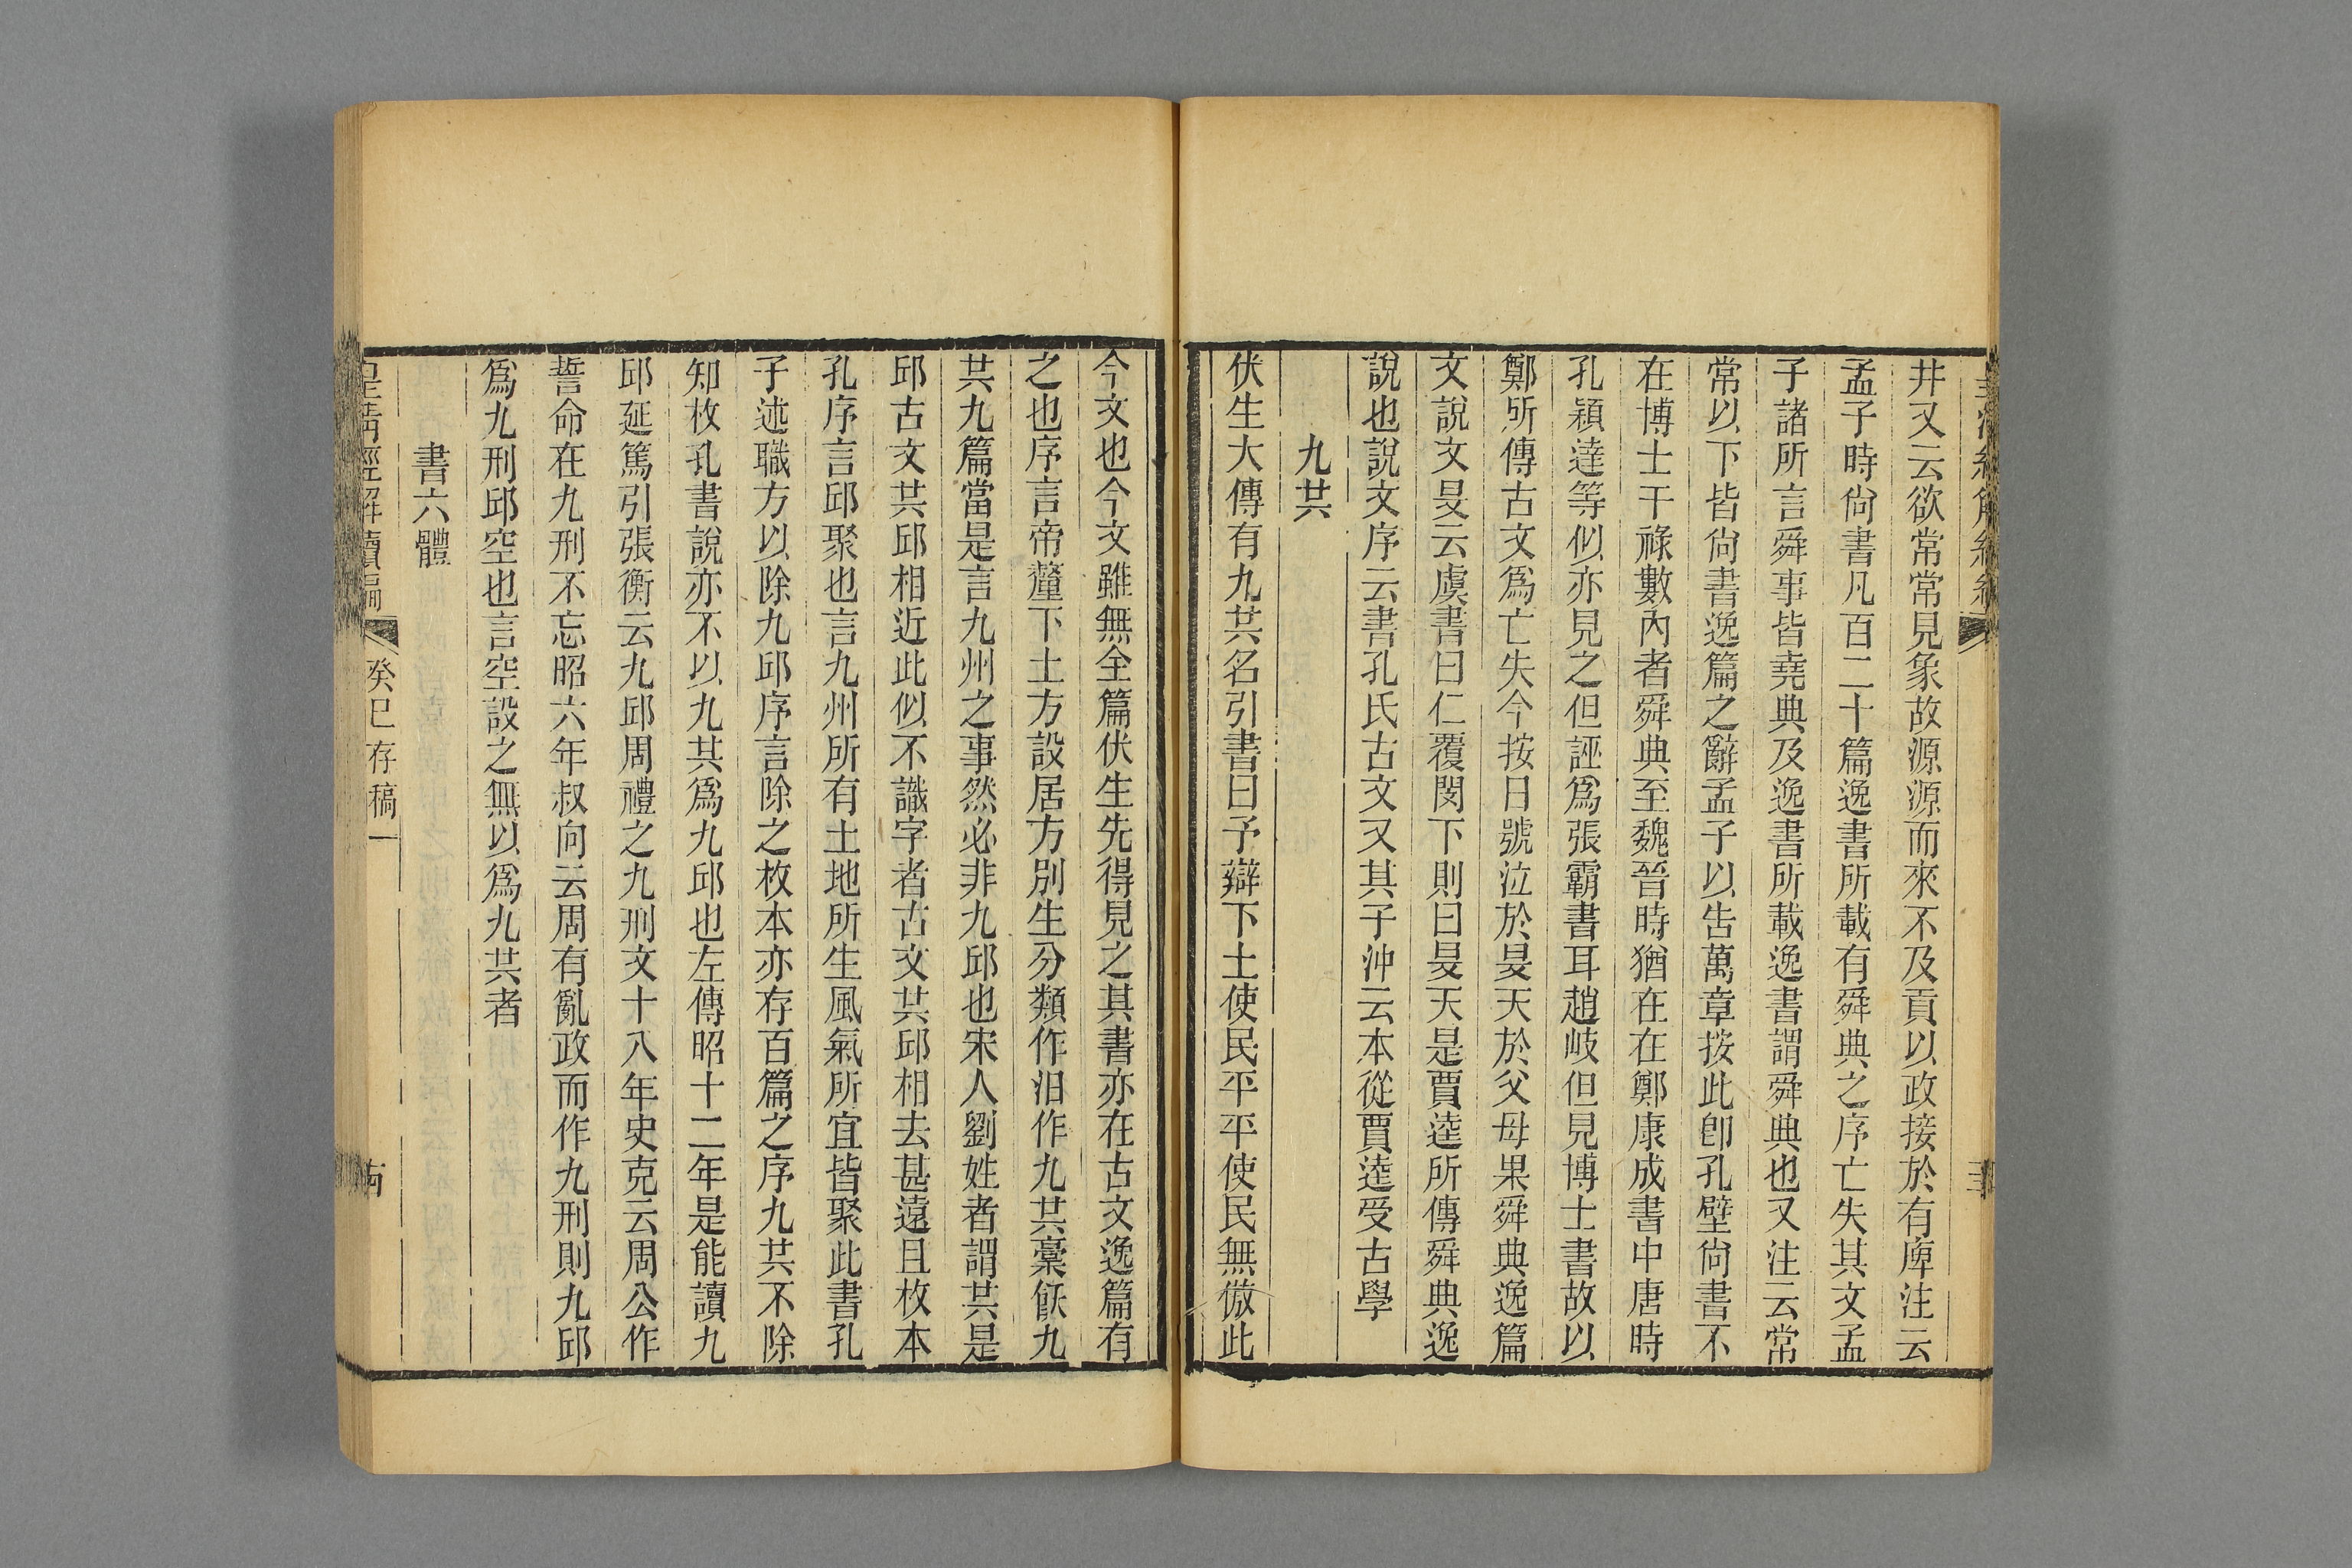 井又云欲常常見象故源源而來不及貢以政接於有庳注云
孟子時尙書凡百二十篇逸書所載有舜典之序亡失其文孟
子諸所言舜事皆堯典及逸書所載逸書謂舜典也又注云常
常以下皆尙書逸篇之辭孟子以告萬章按此卽孔壁尙書不
在博士干祿數內者舜典至魏晉時猶在在鄭康成書中唐時
孔穎達等似亦見之但誣爲張霸書耳趙岐但見博士書故以
鄭所傳古文爲亡失今按日號泣於旻天於父母果舜典逸篇
文說文旻云虞書曰仁覆閔下則曰旻天是賈逵所傳舜典逸
說也說文序云書孔氏古文又其子沖云本從賈逵受古學
九共
伏生大傳有九共名引書曰予辯下土使民平平使民無傲此
今文也今文雖無全篇伏生先得見之其書亦在古文逸篇有
之也序言帝釐下土方設居方別生分類作汨作九共槀飫九
共九篇當是言九州之事然必非九邱也宋人劉姓者謂共是
邱古文共邱相近此似不識字者古文共邱相去甚遠且枚本
孔序言邱聚也言九州所有土地所生風氣所宜皆聚此書孔
子述職方以除九邱序言除之枚本亦存百篇之序九共不除
知枚孔書說亦不以九共爲九邱也左傳昭十二年是能讀九
邱延篤引張衡云九邱周禮之九刑文十八年史克云周公作
誓命在九刑不忘昭六年叔向云周有亂政而作九刑則九邱
爲九刑邱空也言空設之無以爲九共者
書六體
皇淸經解續編 癸巳存稿一